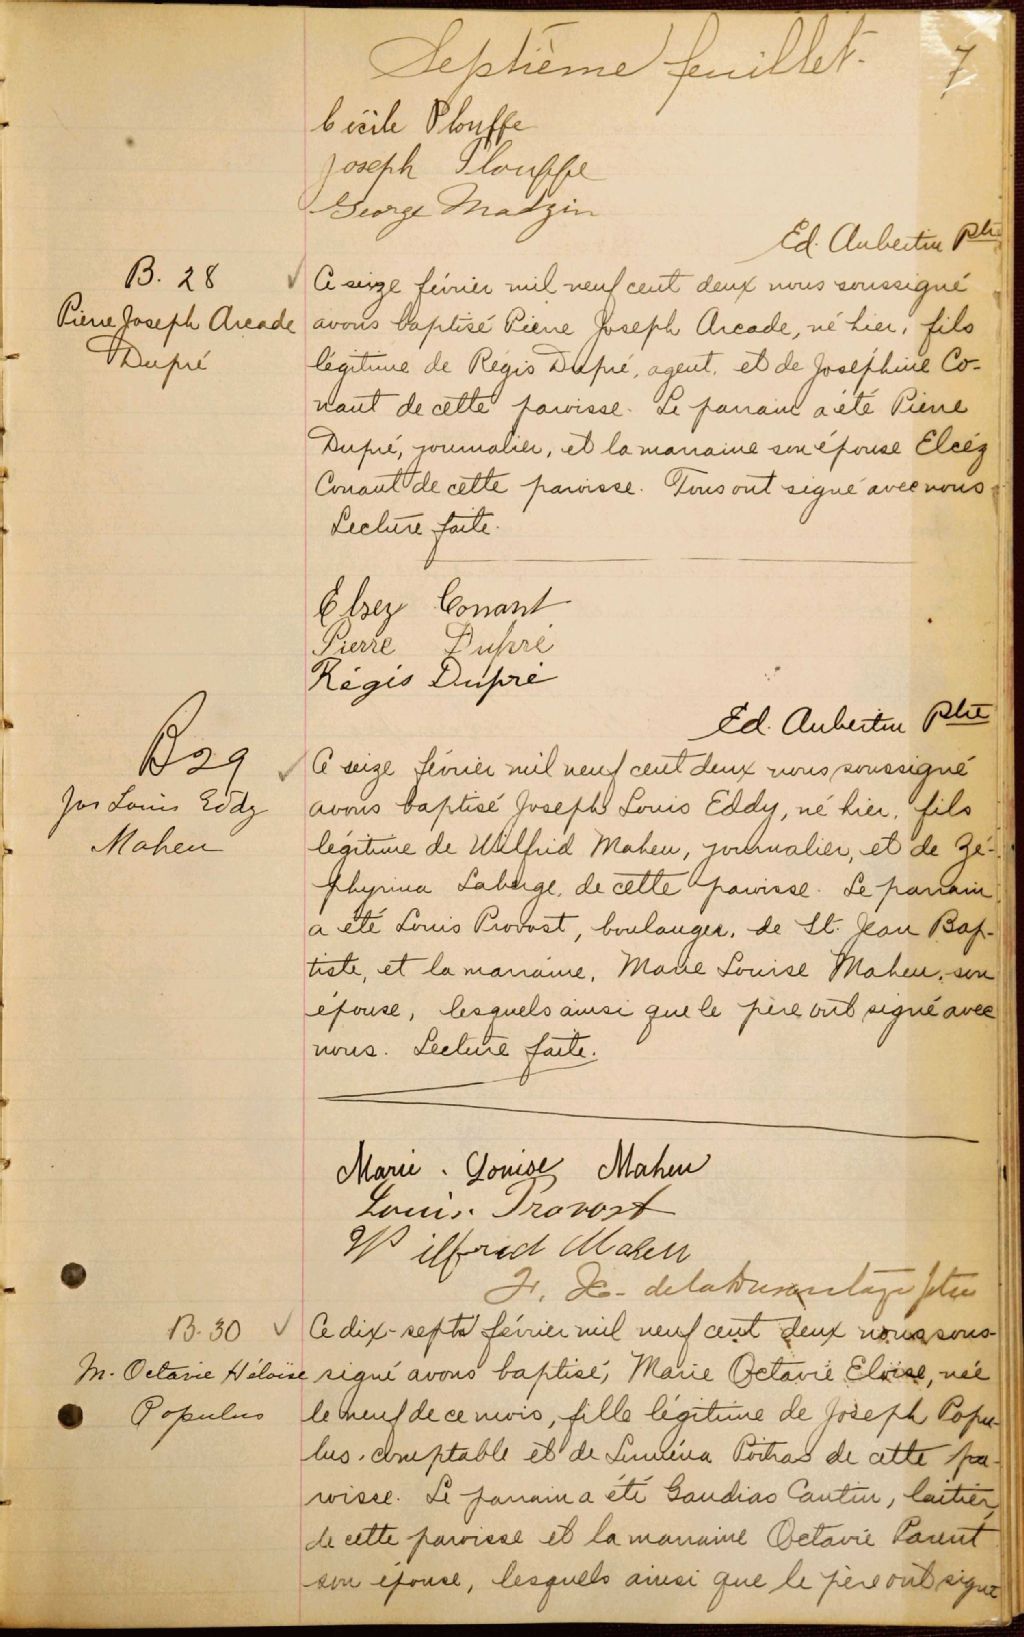 Septième feuillet. 7
Cécile Plouffe
Joseph Plouffe
George Madzin
Ed. Aubertin Ptre
B. 28
Pierre Joseph Arcade
Dupré
Ce seize février mil neuf cent deux nous soussigné
avons baptisé Pierre Joseph Arcade, né hier, fils
légitime de Régis Dupré, agent, et de Joséphine Co-
nant de cette paroisse. Le parrain a été Pierre
Dupré, journalier, et la marraine son épouse Elcéz
Conant de cette paroisse. Tous ont signé avec nous
Lecture faite.
Elsez Conant
Pierre Dupré
Régis Dupré
Ed. Aubertin Ptre
B 29
Jos Louis Eddy
Maheu
Ce seize février mil neuf cent deux nous soussigné
avons baptisé Joseph Louis Eddy, né hier, fils
légitime de Wilfrid Maheu, journalier, et de Zé-
phyrina Laberge, de cette paroisse. Le parrain
a été Louis Provost, boulanger, de St. Jean Bap-
tiste, et la marraine, Marie Louise Maheu, son
épouse, lesquels ainsi que le père ont signé avec
nous. Lecture faite.
Marie. Louise Maheu
Louis. Provost
Wilfrid Maheu
F. X. de la Durantaye ptre
B. 30
M. Octavie Héloïse
Populus
Ce dix-sept février mil neuf cent deux nous sous-
signé avons baptisé, Marie Octavie Eloïse, née
le neuf de ce mois, fille légitime de Joseph Popu-
lus, comptable et de Luména Poitras de cette pa-
roisse. Le parrain a été Gaudias Cantin, laitier,
de cette paroisse et la marraine Octavie Parent
son épouse, lesquels ainsi que le père ont signé